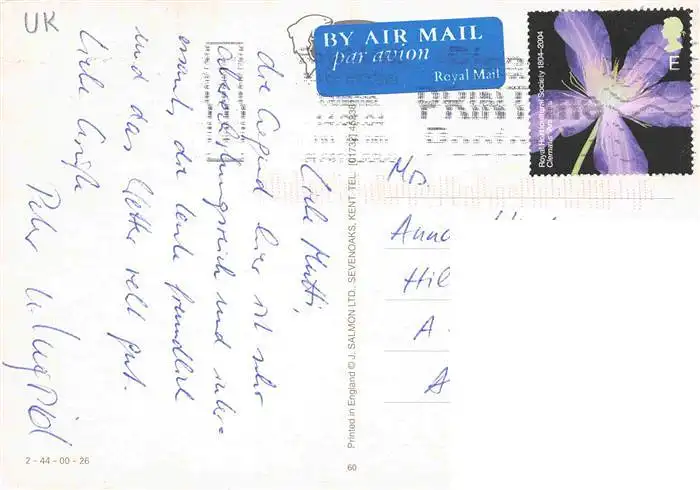 UK
BY AIR MAIL
par avion
Royal Mail
Royal Horticultural Society 1804-2004
E
Liebe Mutti,
die Gegend hier ist sehr
abwechslungsreich und inter=
essant, die Leute freundlich
und das Wetter recht gut.
Liebe Grüße
Peter u. Ingrid
Mrs.
Anna
Hil
A
A
Printed in England © J. SALMON LTD., SEVENOAKS, KENT. TEL:
2-44-00-26
60